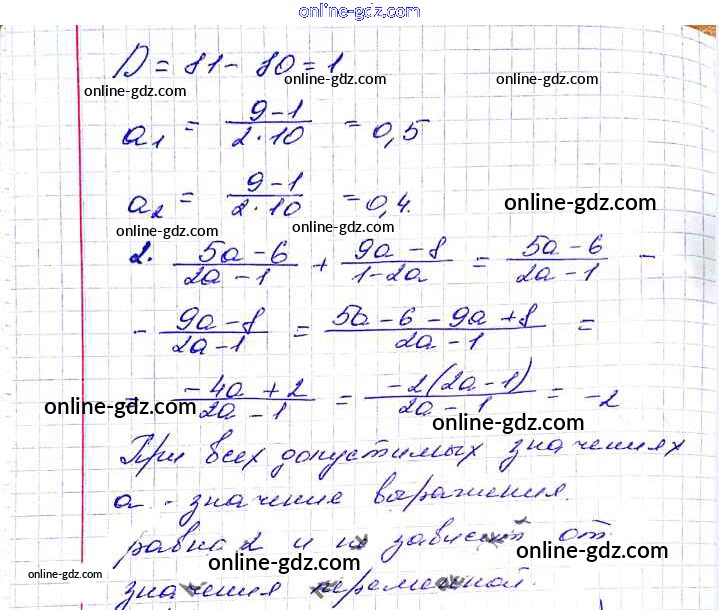 online-gdz.com
D = 81 - 80 = 1
online-gdz.com online-gdz.com
a₁ = (9-1)/(2·10) = 0,5
online-gdz.com online-gdz.com
a₂ = (9-1)/(2·10) = 0,4.
online-gdz.com
online-gdz.com online-gdz.com
2. (5a-6)/(2a-1) + (9a-8)/(1-2a) = (5a-6)/(2a-1) -
- (9a-8)/(2a-1) = (5a-6-9a+8)/(2a-1) =
= (-4a+2)/(2a-1) = (-2(2a-1))/(2a-1) = -2
online-gdz.com online-gdz.com
При всех допустимых значениях
a - значение выражения
online-gdz.com
равна 2 и не зависит от
online-gdz.com online-gdz.com
значения переменной.
online-gdz.com